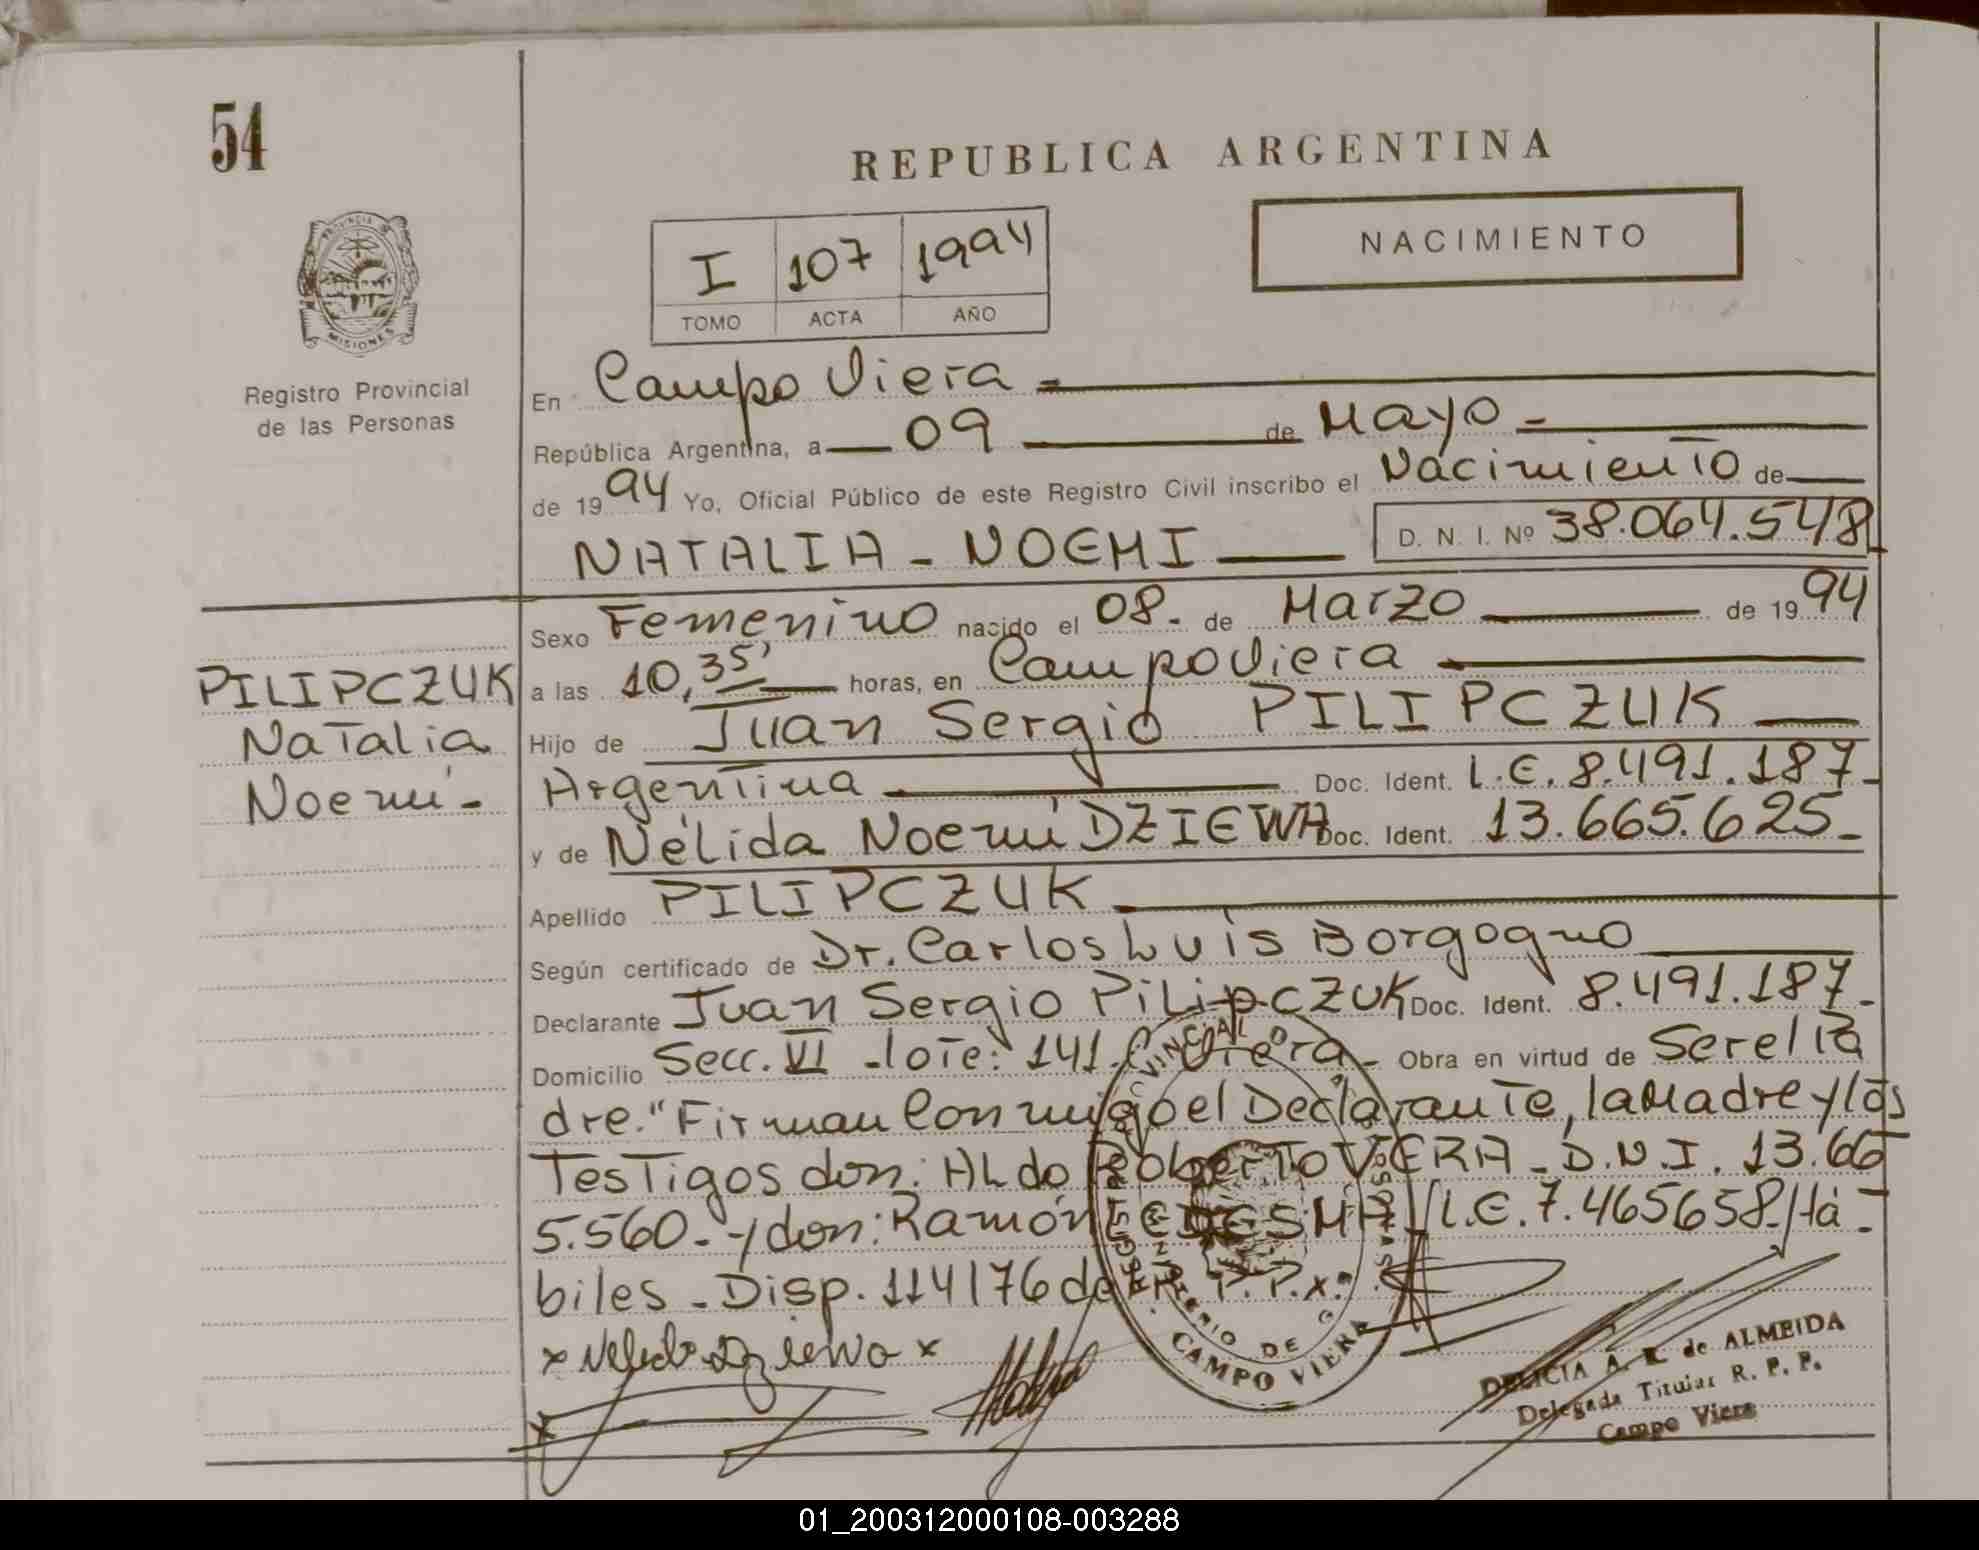 54
REPUBLICA ARGENTINA
PROVINCIA DE
MISIONES
Registro Provincial
de las Personas
I 107 1994
TOMO ACTA AÑO
NACIMIENTO
En Campo Viera -
República Argentina, a 09 de Mayo -
de 1994 Yo, Oficial Público de este Registro Civil inscribo el Nacimiento de
NATALIA - NOEMI D. N. I. Nº 38.064.548
Sexo Femenino nacido el 08- de Marzo de 1994
PILIPCZUK
Natalia
Noemí-
a las 10,35' horas, en Campo Viera
Hijo de Juan Sergio PILIPCZUK
Argentina Doc. Ident. L.E. 8.491.187-
y de Nélida Noemí DZIEWA Doc. Ident. 13.665.625-
Apellido PILIPCZUK
Según certificado de Dr. Carlos Luis Borgogno
Declarante Juan Sergio PiLipCZUK Doc. Ident. 8.491.187-
Domicilio Secc. VI - lote: 141. C. Viera - Obra en virtud de Ser el Pa
dre." Firman Conmigo el Declarante, la Madre y los
Testigos don: ALdo Roberto VERA - D.N.I. 13.66
5.560.- y don: Ramón LEDESMA L.E. 7.465658-/Há-
biles - Disp. 114/76 de R.P.P.x.
x Nelida Dziewa x
REGISTRO PROVINCIAL DE LAS PERSONAS
MINISTERIO DE G
CAMPO VIERA
DELICIA A. K. de ALMEIDA
Delegada Titular R. P. P.
Campo Viera
01_200312000108-003288